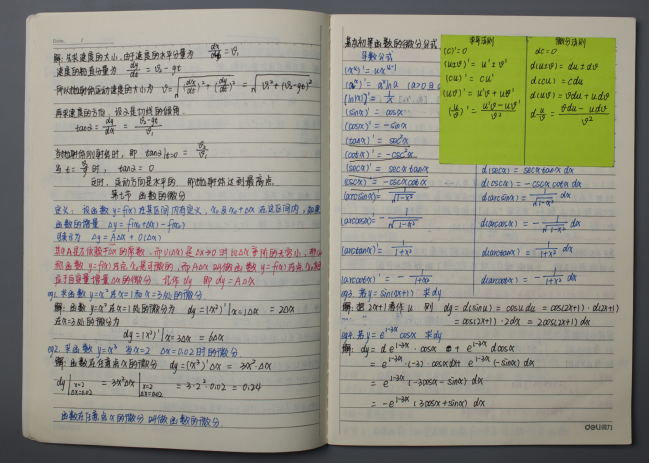 解: 先求速度的大小,由于速度的水平分量为 dx/dt = v₁
速度的铅直分量为 dy/dt = v₂ - gt
所以抛射体运动速度的大小为 v = √((dx/dt)² + (dy/dt)²) = √(v₁² + (v₂-gt)²)
再求速度的方向, 设α是切线的倾角
tanα = dy/dx = (v₂-gt)/v₁
当抛射体刚射出时, 即 tanα|t=0 = v₂/v₁
当 t = v₂/g 时, tanα = 0
这时, 运动方向是水平的, 即抛射体达到最高点.
第七节 函数的微分
定义: 设函数 y=f(x) 在某区间内有定义, x₀及x₀+Δx 在这区间内, 如果
函数的增量 Δy = f(x₀+Δx) - f(x₀)
Δy = AΔx + o(Δx)
其中A是不依赖于Δx的常数, 而o(Δx)是Δx→0时比Δx高阶的无穷小, 那
函数 y=f(x) 在点x₀是可微的, 而AΔx叫做函数 y=f(x) 在点x₀
于自变量增量Δx的微分, 记作 dy 即 dy = AΔx
eg1. 求函数 y=x² 在x=1和x=3处的微分
解: 函数 y=x² 在x=1处的微分为 dy = (x²)'|x=1 Δx = 2Δx
在x=3处的微分为
dy = (x²)'|x=3 Δx = 6Δx
eg2. 求函数 y=x³ 当x=2 Δx=0.02时的微分
解: 函数在任意点x的微分 dy = (x³)'Δx = 3x²·Δx
dy|x=2 Δx=0.02 = 3x²Δx|x=2 Δx=0.02 = 3·2²·0.02 = 0.24
函数在任意点x的微分 叫做函数的微分
基本初等函数的微分公式
导数公式
(xᵘ)' = uxᵘ⁻¹
(aˣ)' = aˣ ln a (a>0且
(ln|x|)' = 1/x
(sinx)' = cosx
(cosx)' = -sinx
(tanx)' = sec²x
(cotx)' = -csc²x
(secx)' = secx tanx d(secx) = secx tanx dx
(cscx)' = -cscx cotx d(cscx) = -cscx cotx dx
(arcsinx)' = 1/√(1-x²) d(arcsinx) = 1/√(1-x²) dx
(arccosx)' = -1/√(1-x²) d(arccosx) = -1/√(1-x²) dx
(arctanx)' = 1/(1+x²) d(arctanx) = 1/(1+x²) dx
(arccotx)' = -1/(1+x²) d(arccotx) = -1/(1+x²) dx
求导法则 微分法则
(C)' = 0 dC = 0
(u±v)' = u'±v' d(u±v) = du±dv
(cu)' = cu' d(cu) = cdu
(uv)' = u'v + uv' d(uv) = vdu + udv
(u/v)' = (u'v-uv')/v² d u/v = (vdu-udv)/v²
eg3. 若 y=sin(2x+1) 求dy
解: 把 2x+1 看作 u 则 dy = d(sinu) = cosu du = cos(2x+1)·d(2x+1)
= cos(2x+1)·2dx = 2cos(2x+1)dx
eg4. 若 y=e^(1-3x) cosx 求dy
解: dy = d e^(1-3x)·cosx + e^(1-3x) dcosx
= e^(1-3x)·(-3)·cosxdx + e^(1-3x)(-sinx)dx
= e^(1-3x)(-3cosx - sinx)dx
= -e^(1-3x)(3cosx + sinx)dx
deli得力